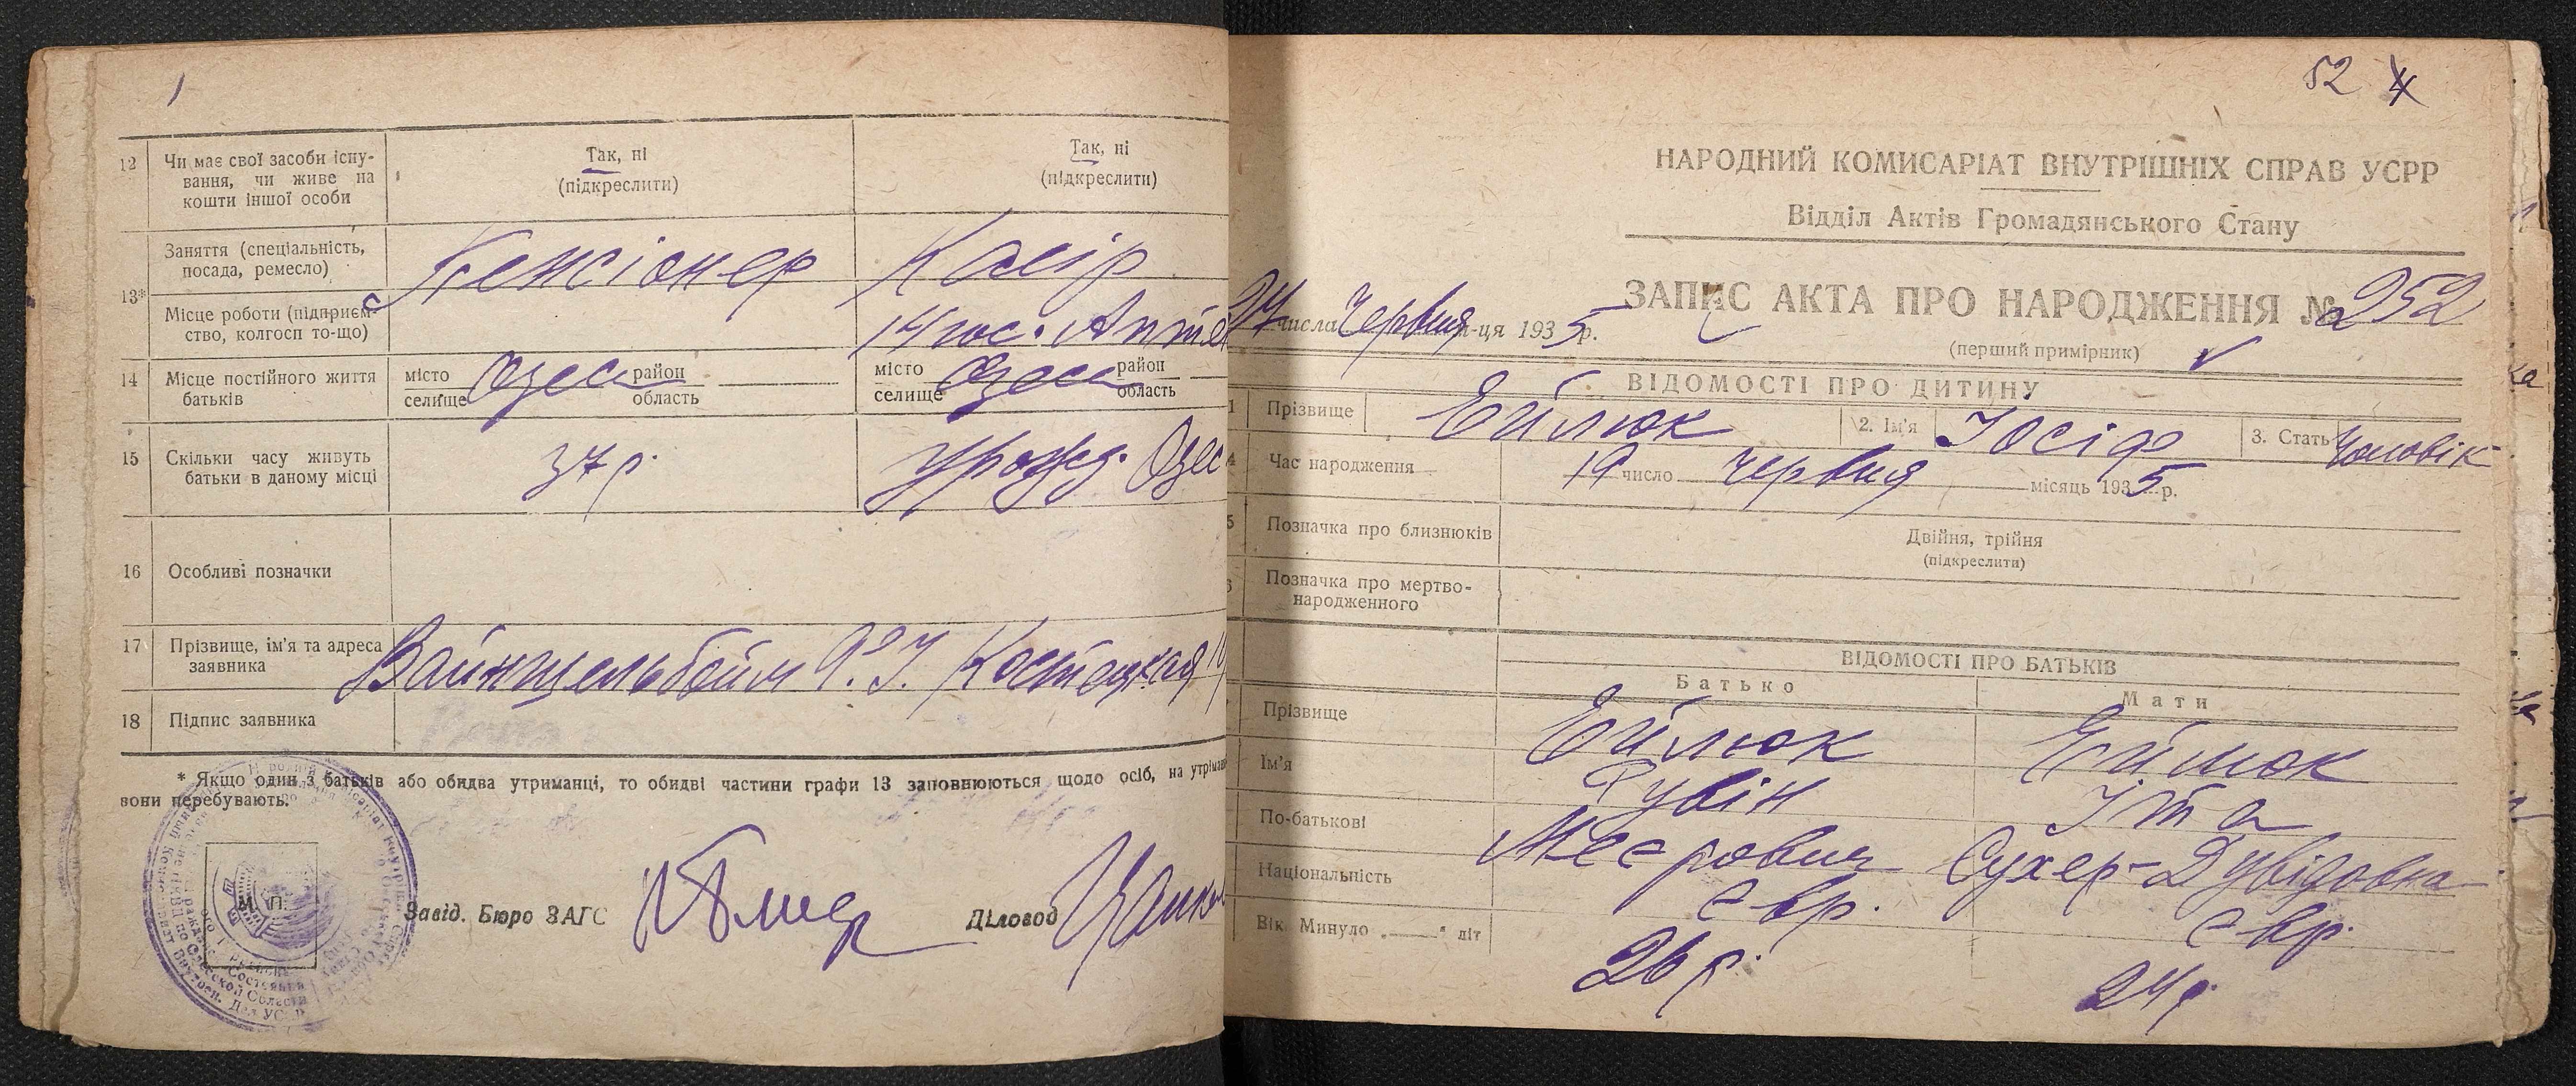 12 Чи має свої засоби існу-
вання, чи живе на
кошти іншої особи
Так, ні
(підкреслити)
Так, ні
(підкреслити)
13*
Заняття (спеціальність,
посада, ремесло)
Пенсіонер
Касір
Місце роботи (підприєм-
ство, колгосп то-що)
14 гос. Апте
14 Місце постійного життя
батьків
місто
селище
Одеса
район
область
місто
селище
Одеса
район
область
15 Скільки часу живуть
батьки в даному місці
37 р.
урожд. Одес
16 Особливі позначки
17 Прізвище, ім'я та адреса
заявника
Вайншельбойм
Костецкая
18 Підпис заявника
* Якщо один з батьків або обидва утриманці, то обидві частини графи 13 заповнюються щодо осіб, на утриман
вони перебувають.
М. П.
Завід. Бюро ЗАГС
Діловод
52
НАРОДНИЙ КОМИСАРІАТ ВНУТРІШНІХ СПРАВ УСРР
Відділ Актів Громадянського Стану
ЗАПИС АКТА ПРО НАРОДЖЕННЯ № 252
24 числа Червня м-ця 1935 р.
(перший примірник)
ВІДОМОСТІ ПРО ДИТИНУ
1 Прізвище Ейлюк 2. Ім'я Іосіф 3. Стать Чоловік
4 Час народження 19 число Червня місяць 1935 р.
5 Позначка про близнюків
Двійня, трійня
(підкреслити)
6 Позначка про мертво-
народженного
ВІДОМОСТІ ПРО БАТЬКІВ
Батько
Мати
Прізвище Ейлюк Ейлюк
Ім'я Рувін Іта
По-батькові Меєрович Сухер-Дувідовна
Національність євр. євр.
Вік. Минуло „ “ літ 26 р. 24 р.